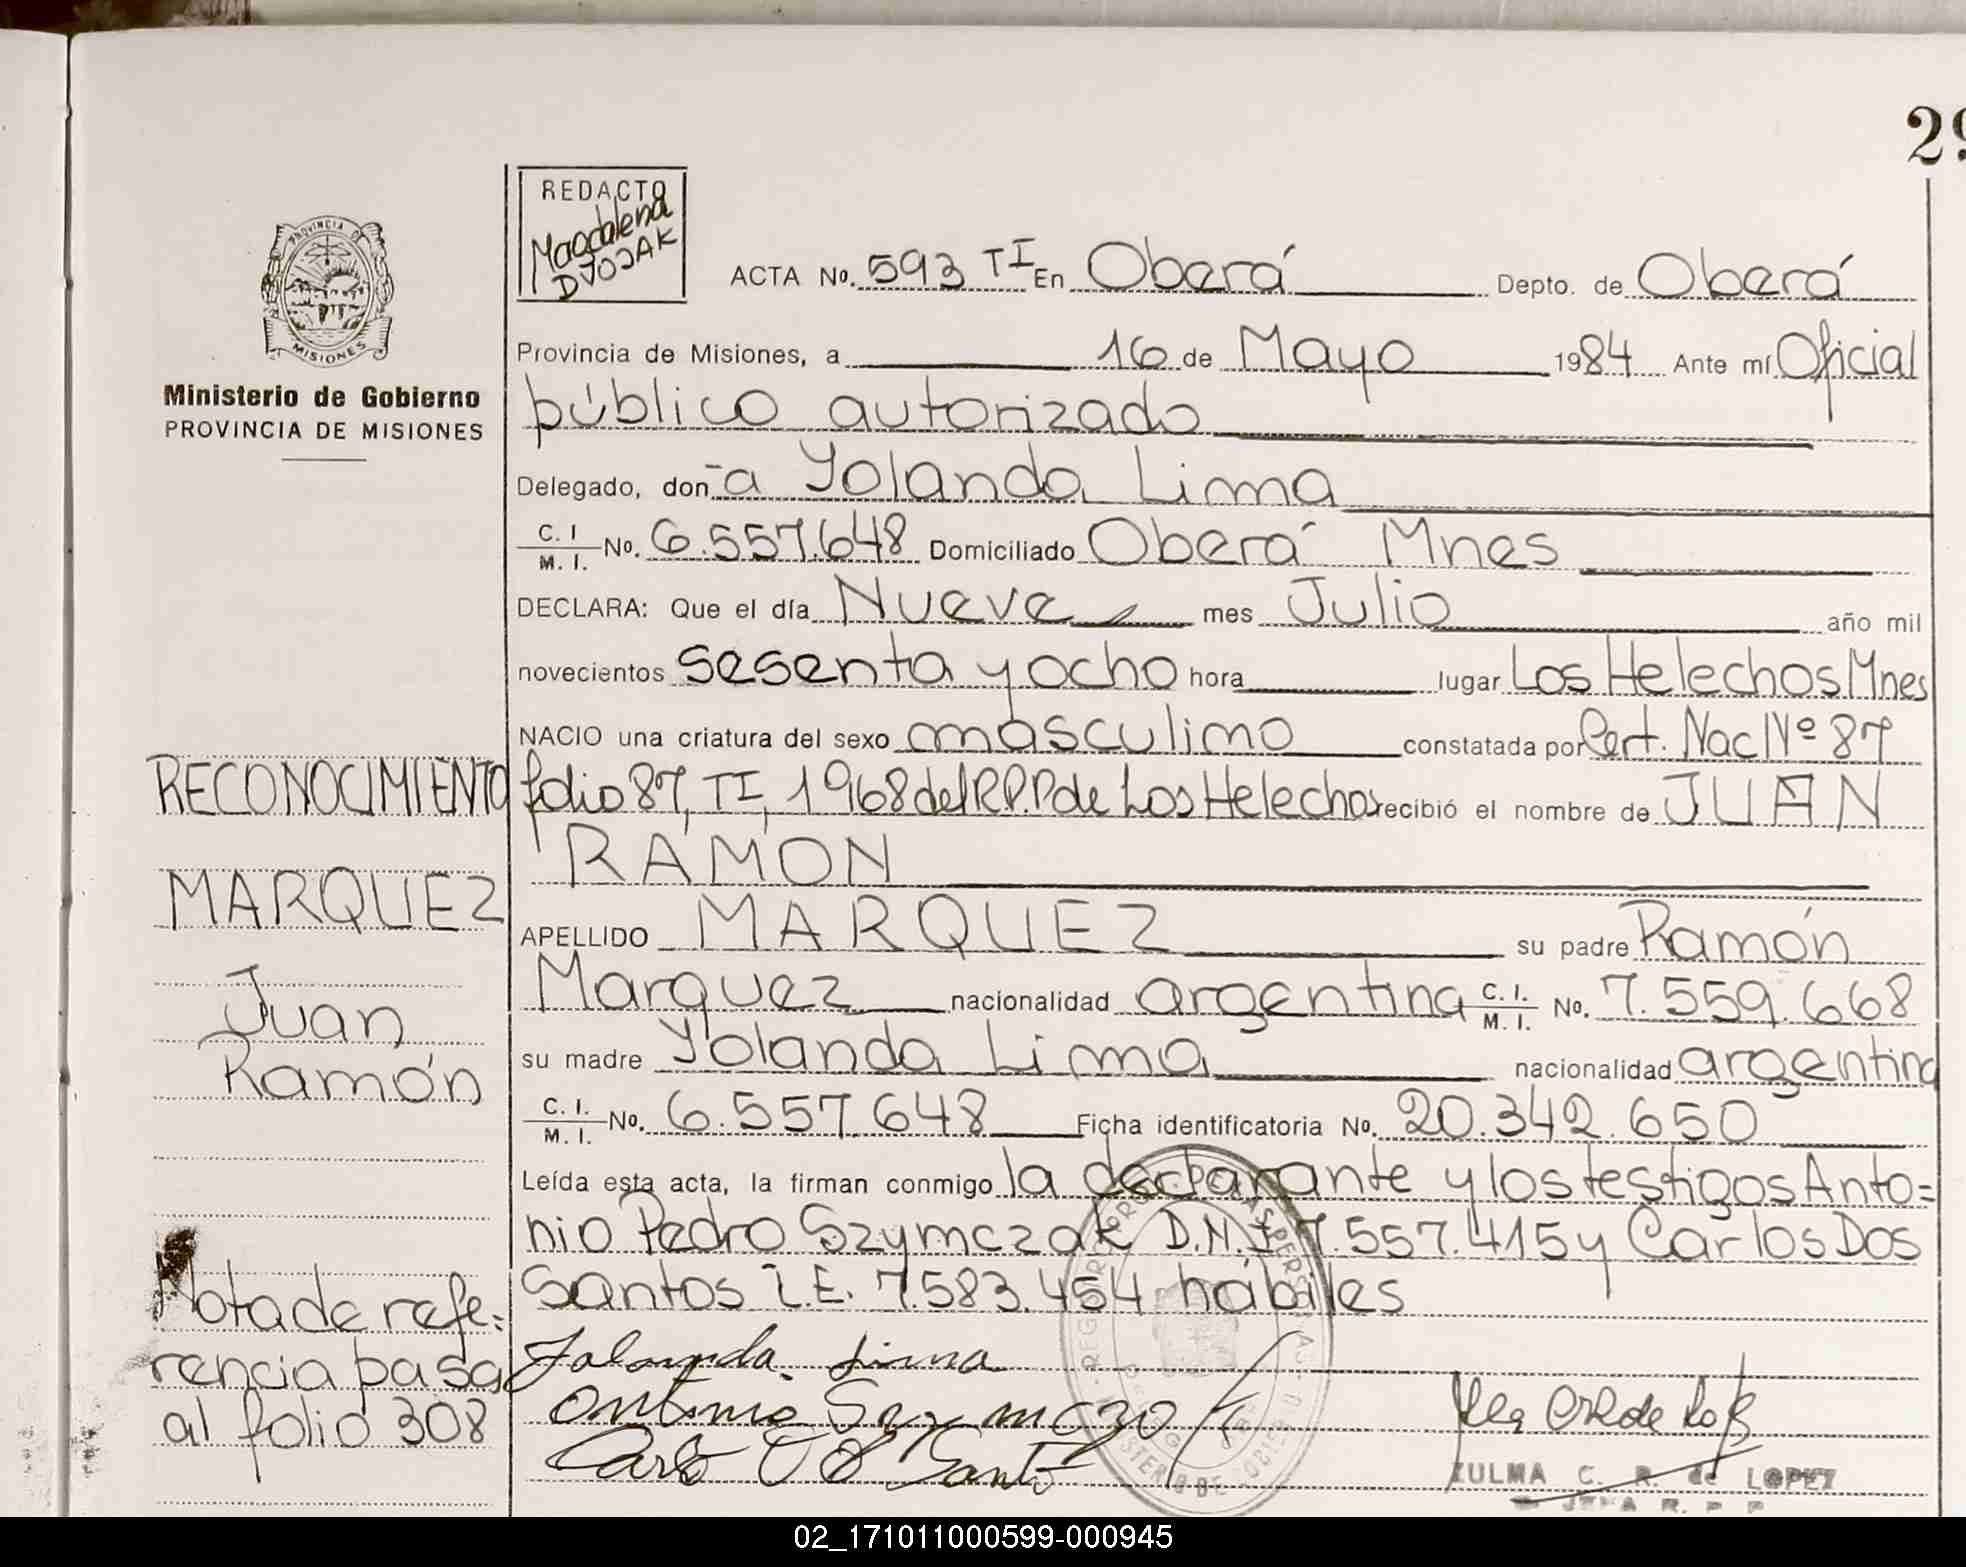 29
REDACTO
Magdalena
DVOJAK
PROVINCIA DE
MISIONES
Ministerio de Gobierno
PROVINCIA DE MISIONES
ACTA No. 593 TI En Oberá Depto. de Oberá
Provincia de Misiones, a 16 de Mayo 1984 Ante mí Oficial
público autorizado
Delegado, don-a Yolanda Lima
C. I. / M. I. No. 6.557.648 Domiciliado Oberá Mnes
DECLARA: Que el día Nueve mes Julio año mil
novecientos sesenta y ocho hora lugar Los Helechos Mnes
NACIO una criatura del sexo masculino constatada por Cert. Nac Nº 87
folio 87, TI, 1968 del R.P.P de Los Helechos recibió el nombre de JUAN
RAMON
APELLIDO MARQUEZ su padre Ramón
Marquez nacionalidad argentina C. I. / M. I. No. 7.559.668
su madre Yolanda Lima nacionalidad argentina
C. I. / M. I. No. 6.557.648 Ficha identificatoria No. 20.342.650
Leída esta acta, la firman conmigo la declarante y los testigos Anto=
nio Pedro Szymczak D.N.I 7.557.415 y Carlos Dos
Santos L.E. 7.583.454 hábiles
Yolanda Lima
Antonio Szymczak
Carlos Dos Santos
ZULMA C. R. de LOPEZ
JEFA R. P. P
RECONOCIMIENTO
MARQUEZ
Juan
Ramón
Nota de refe=
rencia pasa
al folio 308
02_171011000599-000945